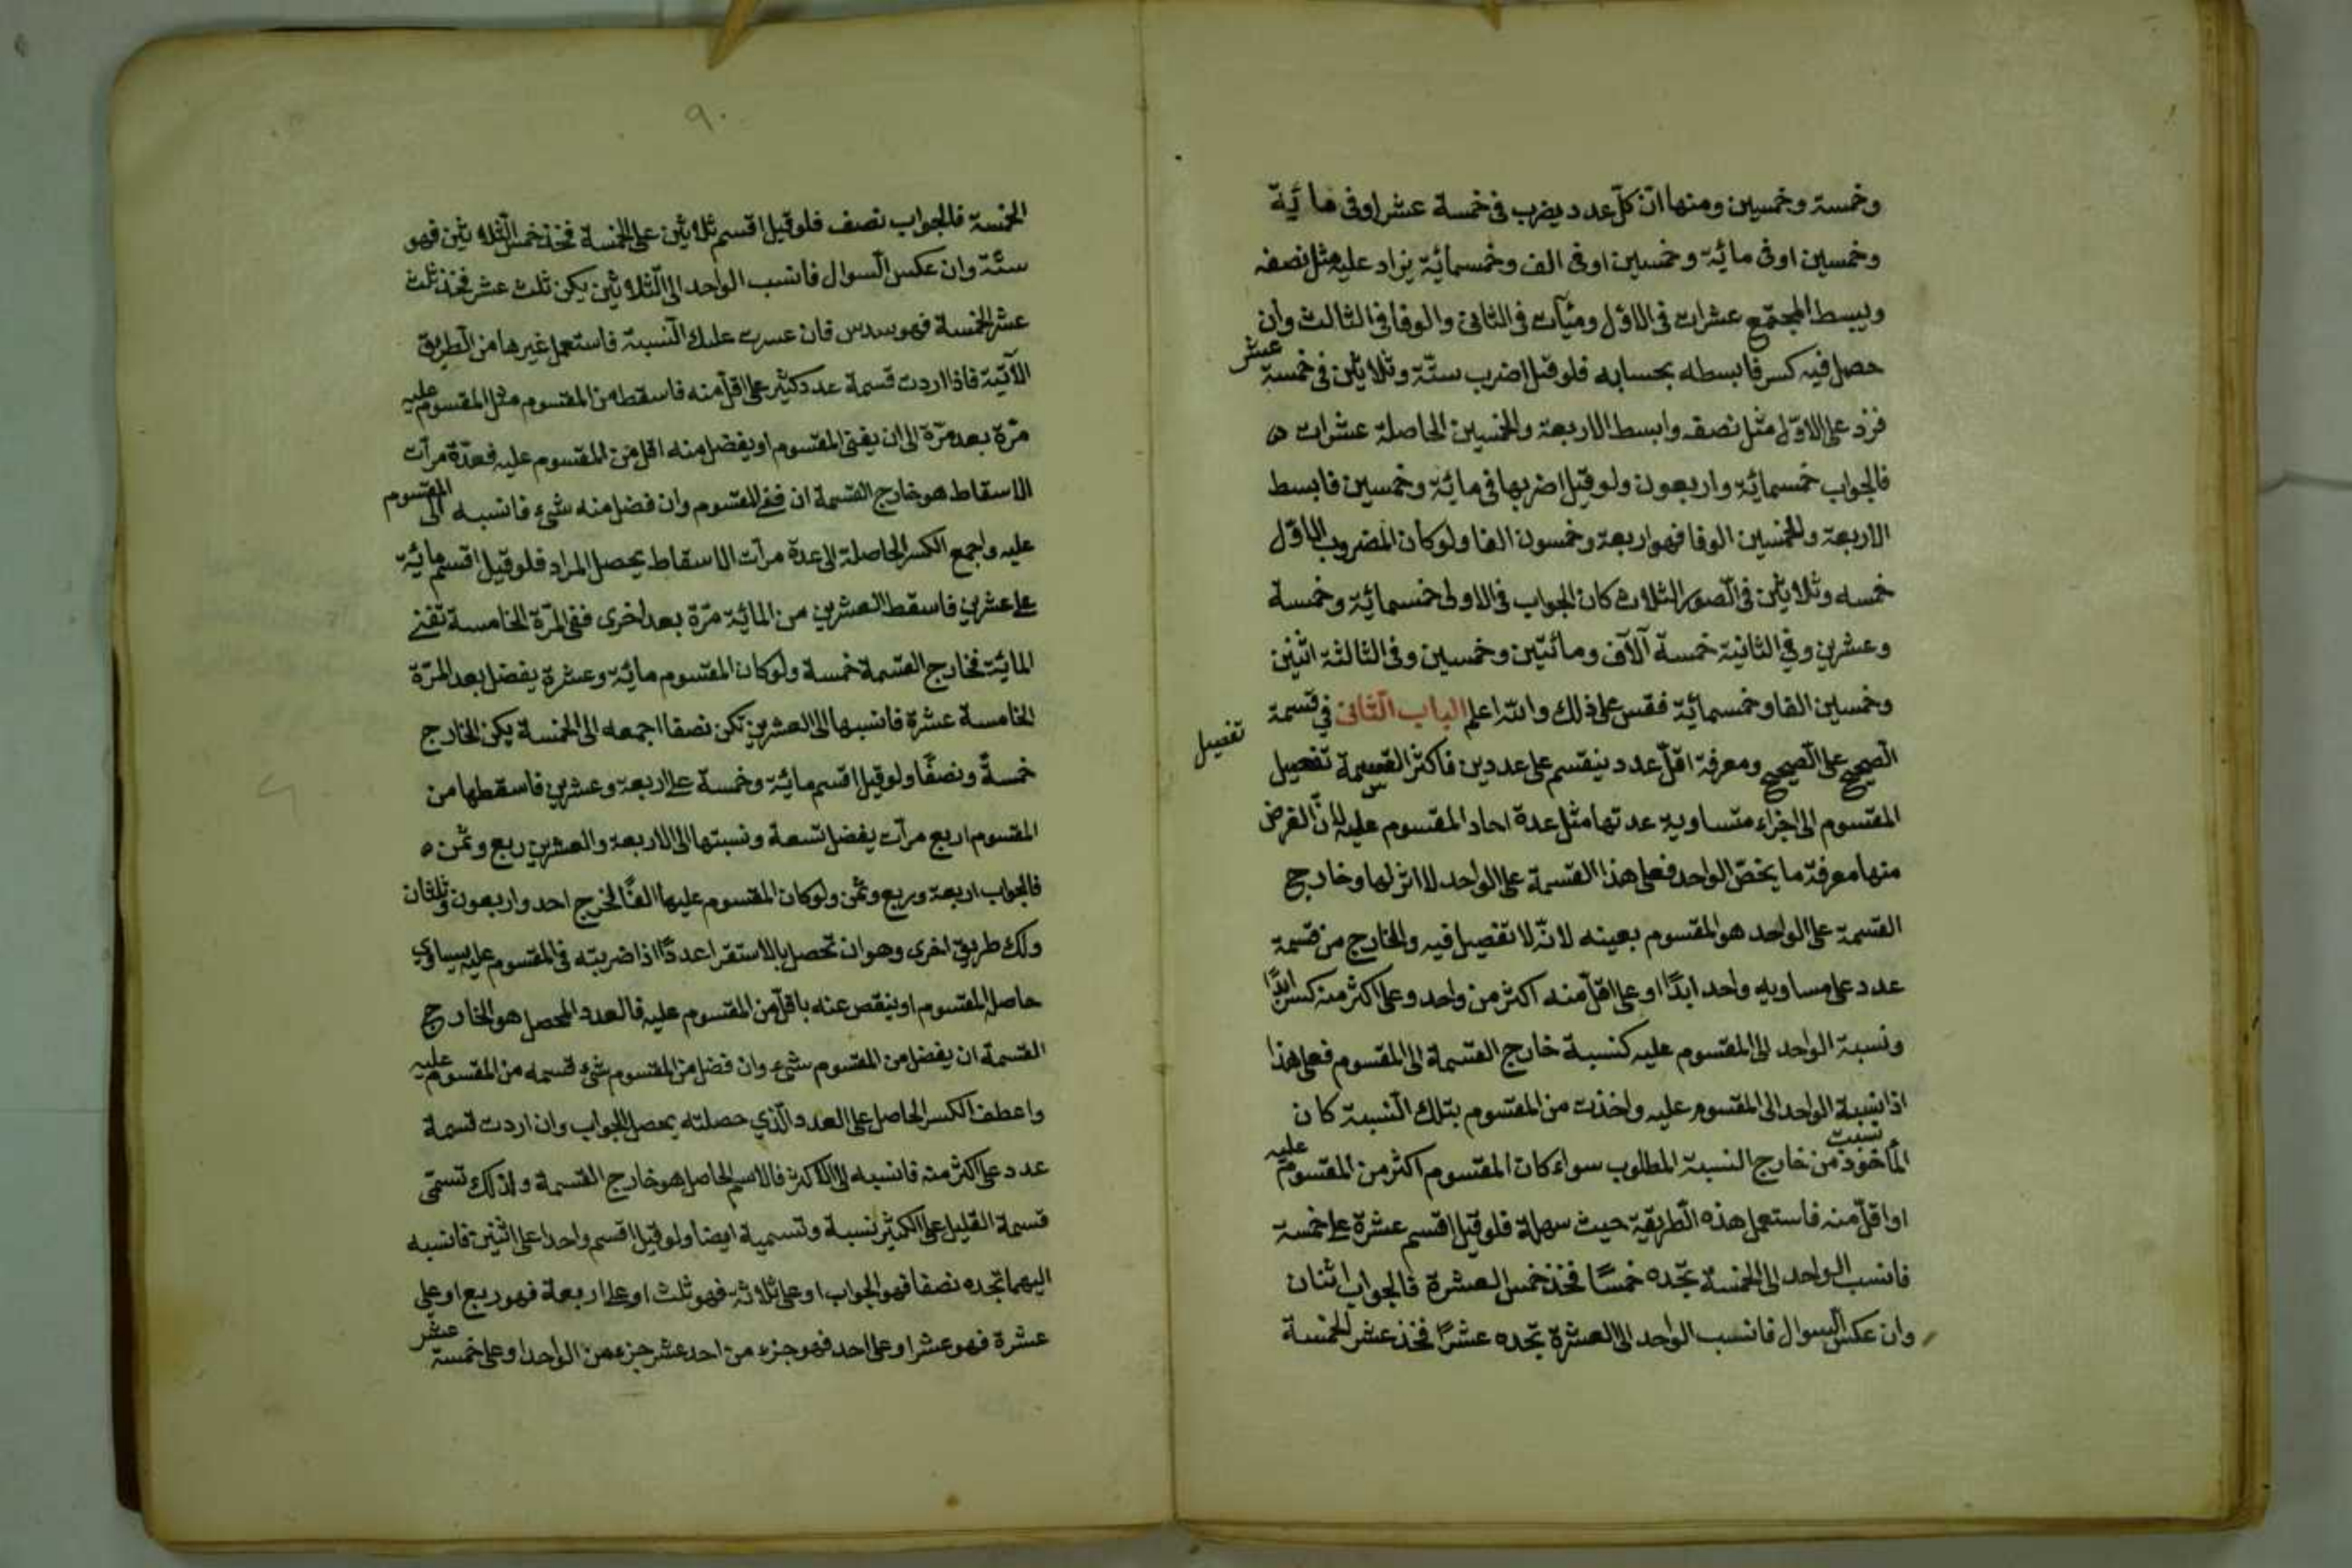 وخمسة وخمسين ومنها ان كلّ عدد يضرب فى خمسة عشر او فى مائة
وخمسين او فى مائة وخمسين او فى الف وخمسمائة يزاد عليه مثل نصفه
ويبسط المجتمع عشرات فى الاوّل ومئآت فى الثانى والوفا فى الثالث وان
حصل فيه كسر فابسطه بحسابه فلو قيل اضرب ستّة وثلاثين فى خمسة عشر
فزد على الاوّل مثل نصفه وابسط الاربعة والخمسين الحاصلة عشرات ه
فالجواب خمسمائة واربعون ولو قيل اضربها فى مائة وخمسين فابسط
الاربعة والخمسين الوفا فهو اربعة وخمسون الفا ولو كان المضروب الاوّل
خمسه وثلاثين فى الصّور الثلاث كان الجواب فى الاولى خمسمائة وخمسة
وعشرين وفي الثانية خمسة آلآف ومائتين وخمسين وفى الثالثة اثنين
وخمسين الفا وخمسمائة فقس على ذلك والله اعلم الباب الثّانى في قسمة
تفصيل
الصّحيح على الصّحيح ومعرفة اقلّ عدد ينقسم على عددين فاكثر القسمة تفصيل
المقسوم الى اجزاء متساوية عدتها مثل عدة احاد المقسوم عليه لانّ الغرض
منها معرفة ما يخصّ الواحد فعلى هذا القسمة على الواحد لا اثر لها وخارج
القسمة على الواحد هو المقسوم بعينه لانّه لا تفصيل فيه والخارج من قسمة
عدد على مساويه واحد ابدًا او على اقلّ منه اكثر من واحد وعلى اكثر منه كسر ابدًا
ونسبة الواحد الى المقسوم عليه كنسبة خارج القسمة الى المقسوم فعلى هذا
اذا نسبة الواحد الى المقسوم عليه واخذت من المقسوم بتلك النّسبة كان
نسبت
المأخوذ من خارج النسبة المطلوب سواء كان المقسوم اكثر من المقسوم عليه
او اقلّ منه فاستعمل هذه الطّريقة حيث سهلة فلو قيل اقسم عشرة على خمسة
فانسب الواحد الى الخمسة تجده خمسًا فخذ خمس العشرة فالجواب اثنان
وان عكس السوال فانسب الواحد الى العشرة تجده عشرًا فخذ عشر الخمسة
٩٠
الخمسة فالجواب نصف فلو قيل اقسم ثلاثين على الخمسة فخذ خمس الثّلاثين فهو
ستّة وان عكس السّوال فانسب الواحد الى الثّلاثين يكن ثلث عشر فخذ ثلث
عشر الخمسة فهو سدس فان عسرت عليك النّسبة فاستعمل غيرها من الطّريق
الآتية فاذا اردت قسمة عدد كثير على اقلّ منه فاسقطه من المقسوم مثل المقسوم عليه
مرّة بعد مرّة الى ان يفنى المقسوم او يفضل منه اقل من المقسوم عليه فعدّة مرات
الاسقاط هو خارج القسمة ان فنى المقسوم وان فضل منه شيء فانسبه الى المقسوم
عليه واجمع الكسر الحاصلة الى عدة مرآت الاسقاط يحصل المراد فلو قيل اقسم مائة
على عشرين فاسقط العشرين من المائة مرّة بعد اخرى ففى المرّة الخامسة تفنى
المائة فخارج القسمة خمسة ولو كان المقسوم مائة وعشرة يفضل بعد المرّة
الخامسة عشرة فانسبها الى العشرين تكن نصفا اجمعه الى الخمسة يكن الخارج
خمسةً ونصفًا ولو قيل اقسم مائة وخمسة على اربعة وعشرين فاسقطها من
المقسوم اربع مرآت يفضل تسعة ونسبتها الى الاربعة والعشرين ربع وثمن ه
فالجواب اربعة وربع وثمن ولو كان المقسوم عليها الفًا لخرج احد واربعون وثلثان
ولك طريق اخرى وهو ان تحصل بالاستقرا عددًا اذا ضربته فى المقسوم عليه يساوي
حاصل المقسوم او ينقص عنه باقل من المقسوم عليه فالعدد المحصل هو الخارج
القسمة ان يفضل من المقسوم شيء وان فضل من المقسوم شيء قسمه من المقسوم عليه
واعطف الكسر الحاصل على العدد الّذي حصلته يحصل الجواب وان اردت قسمة
عدد على اكثر منه فانسبه الى الاكثر فالاسم الحاصل هو خارج القسمة ولذلك تسمّى
قسمة القليل على الكثير نسبة وتسمية ايضا ولو قيل اقسم واحدا على اثنين فانسبه
اليهما تجده نصفا فهو الجواب او على ثلاثة فهو ثلث او على اربعة فهو ربع او على
عشرة فهو عشر او على احد فهو جزء من احد عشر جزء من الواحد او على خمسة عشر